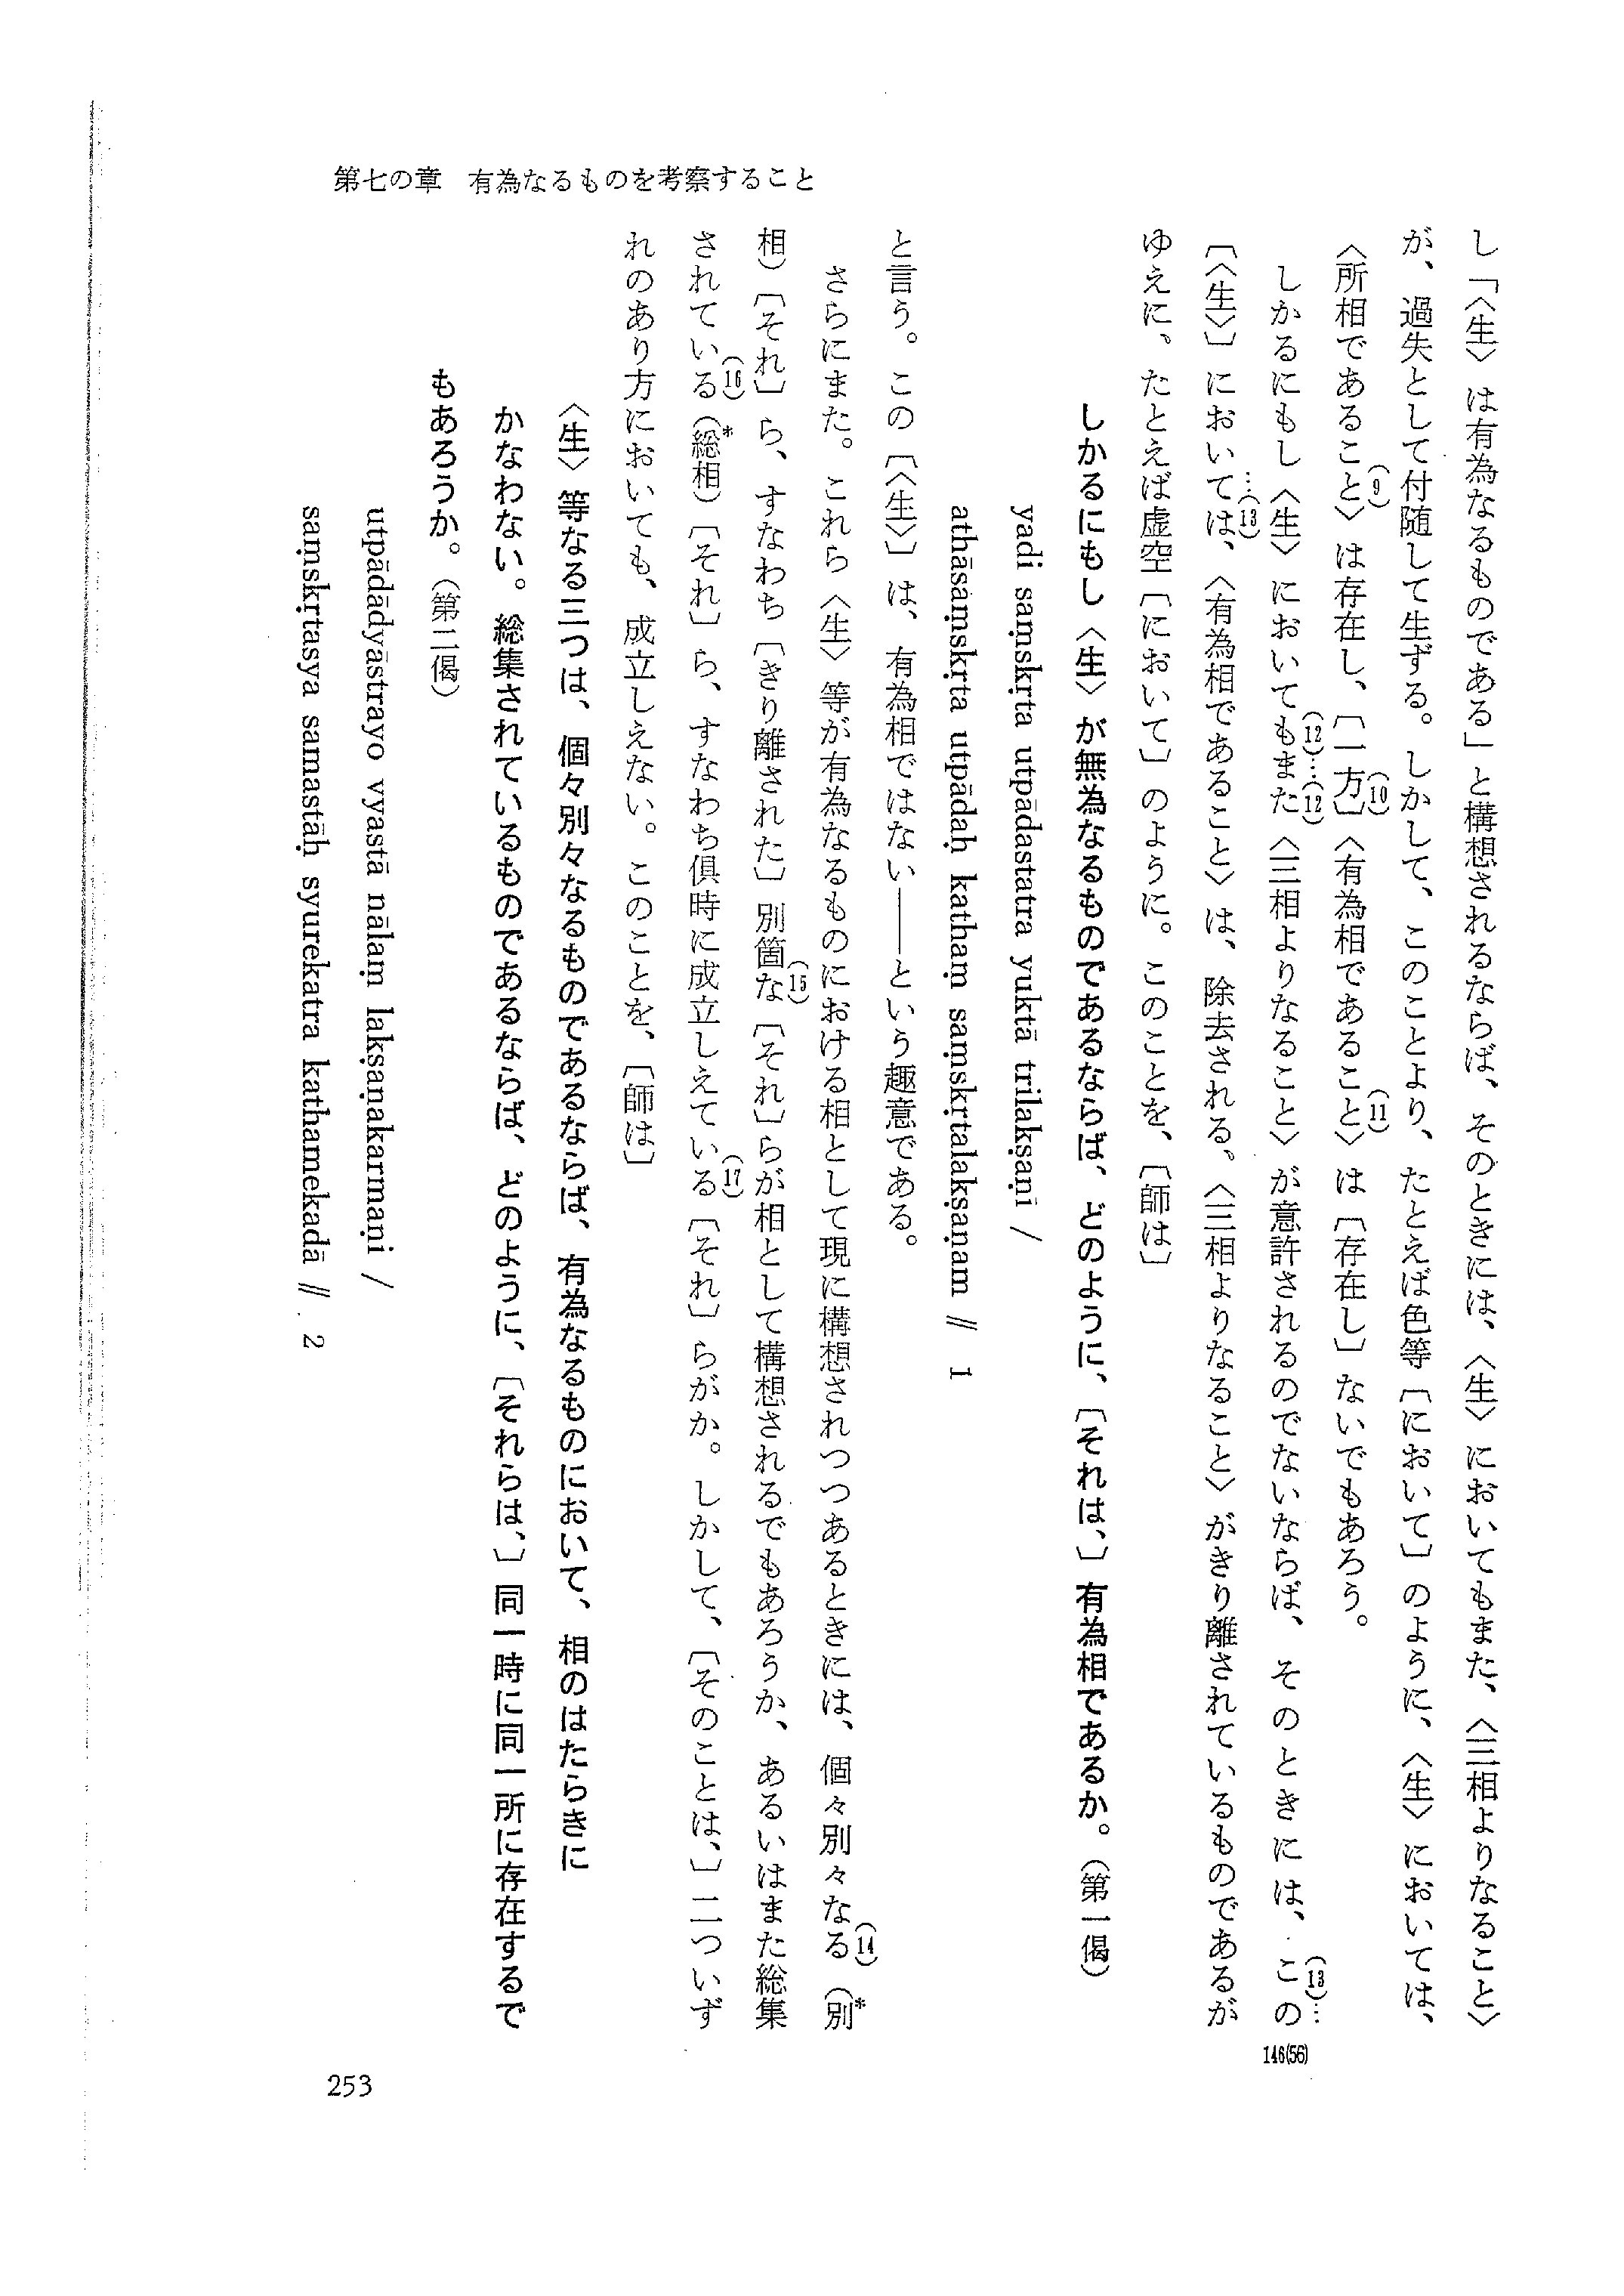 第七の章　有為なるものを考察すること
し「〈生〉は有為なるものである」と構想されるならば、そのときには、〈生〉においてもまた、〈三相よりなること〉
が、過失として付随して生ずる。しかして、このことより、たとえば色等〔において〕のように、〈生〉においては、
〈所相であること(9)〉は存在し、〔一方(10)〕〈有為相であること(11)〉は〔存在し〕ないでもあろう。
　しかるにもし〈生〉においても(12)…また(12)〈三相よりなること〉が意許されるのでないならば、そのときには、(13)…この
〔〈生〉〕においては…(13)、〈有為相であること〉は、除去される。〈三相よりなること〉がきり離されているものであるが
ゆえに。たとえば虚空〔において〕のように。このことを、〔師は〕
しかるにもし〈生〉が無為なるものであるならば、どのように、〔それは、〕有為相であるか。（第一偈）
yadi saṃskṛta utpādastatra yuktā trilakṣaṇī /
athāsaṃskṛta utpādaḥ kathaṃ saṃskṛtalakṣaṇam // 1
と言う。この〔〈生〉〕は、有為相ではない――という趣意である。
　さらにまた。これら〈生〉等が有為なるものにおける相として現に構想されつつあるときには、個々別々なる(14)（別*
相）〔それ〕ら、すなわち〔きり離された〕別箇な(15)〔それ〕らが相として構想されるでもあろうか、あるいはまた総集
されている(16)（総*相）〔それ〕ら、すなわち俱時に成立しえている(17)〔それ〕らがか。しかして、〔そのことは、〕二ついず
れのあり方においても、成立しえない。このことを、〔師は〕
〈生〉等なる三つは、個々別々なるものであるならば、有為なるものにおいて、相のはたらきに
かなわない。総集されているものであるならば、どのように、〔それらは、〕同一時に同一所に存在するで
もあろうか。（第二偈）
utpādādyāstrayo vyastā nālaṃ lakṣaṇakarmaṇi /
saṃskṛtasya samastāḥ syurekatra kathamekadā // 2
146(56)
253